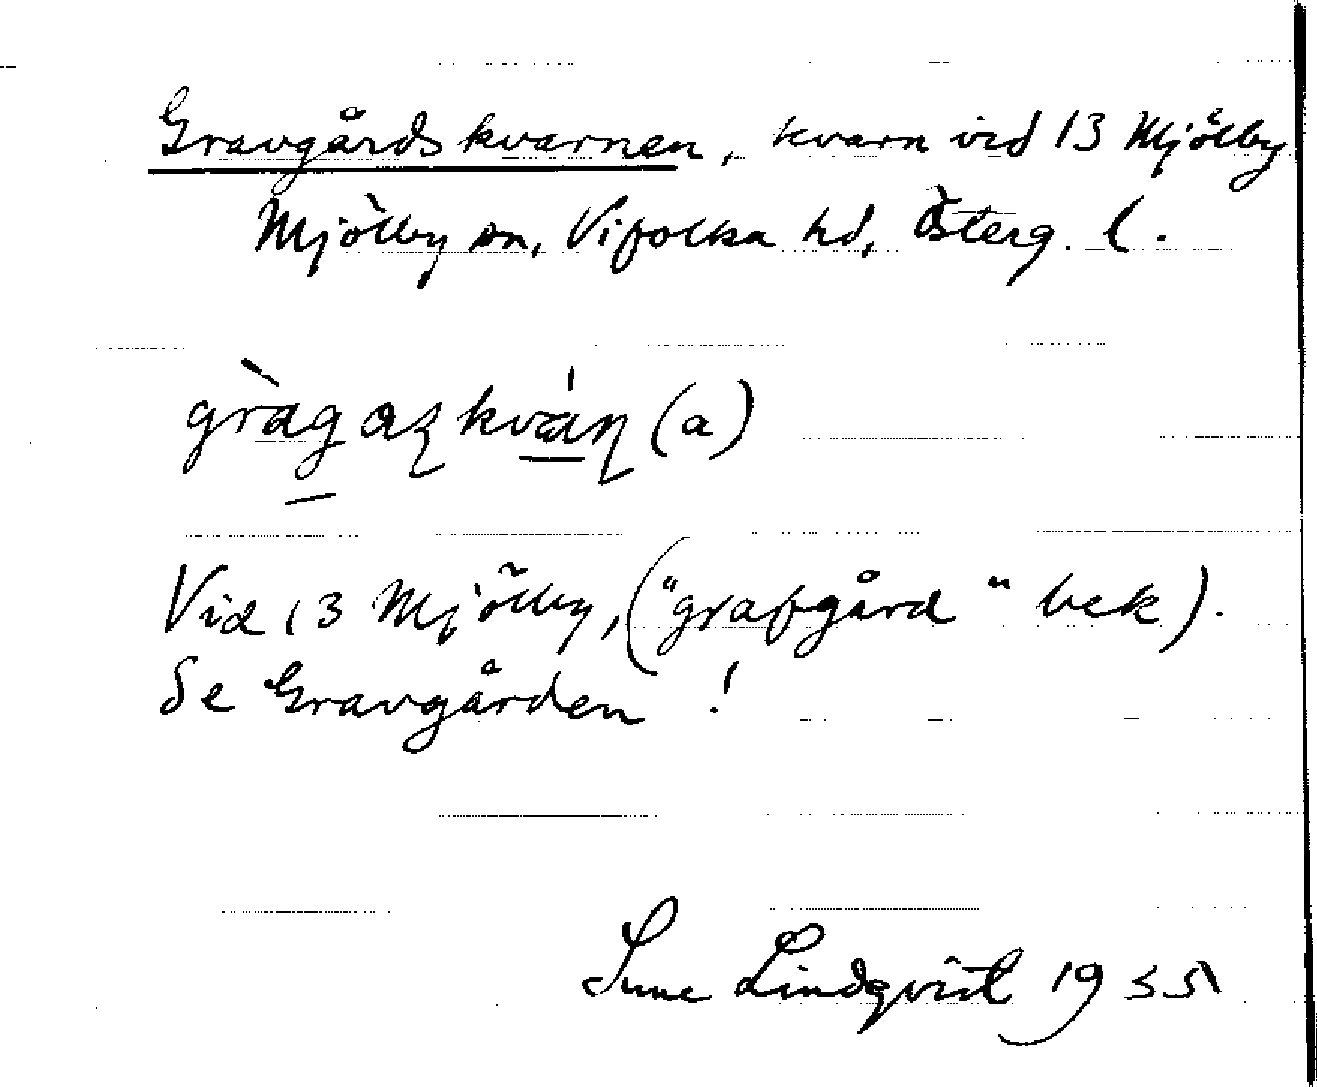 Gravgårdskvarnen, kvarn vid 13 Mjölby
Mjölby sn, Vifolka hd, Österg. l.
gràgaʐkváɳ (a)
Vid 13 Mjölby, ("grafgård" bek).
Se Gravgården!
Sune Lindqvist 1935